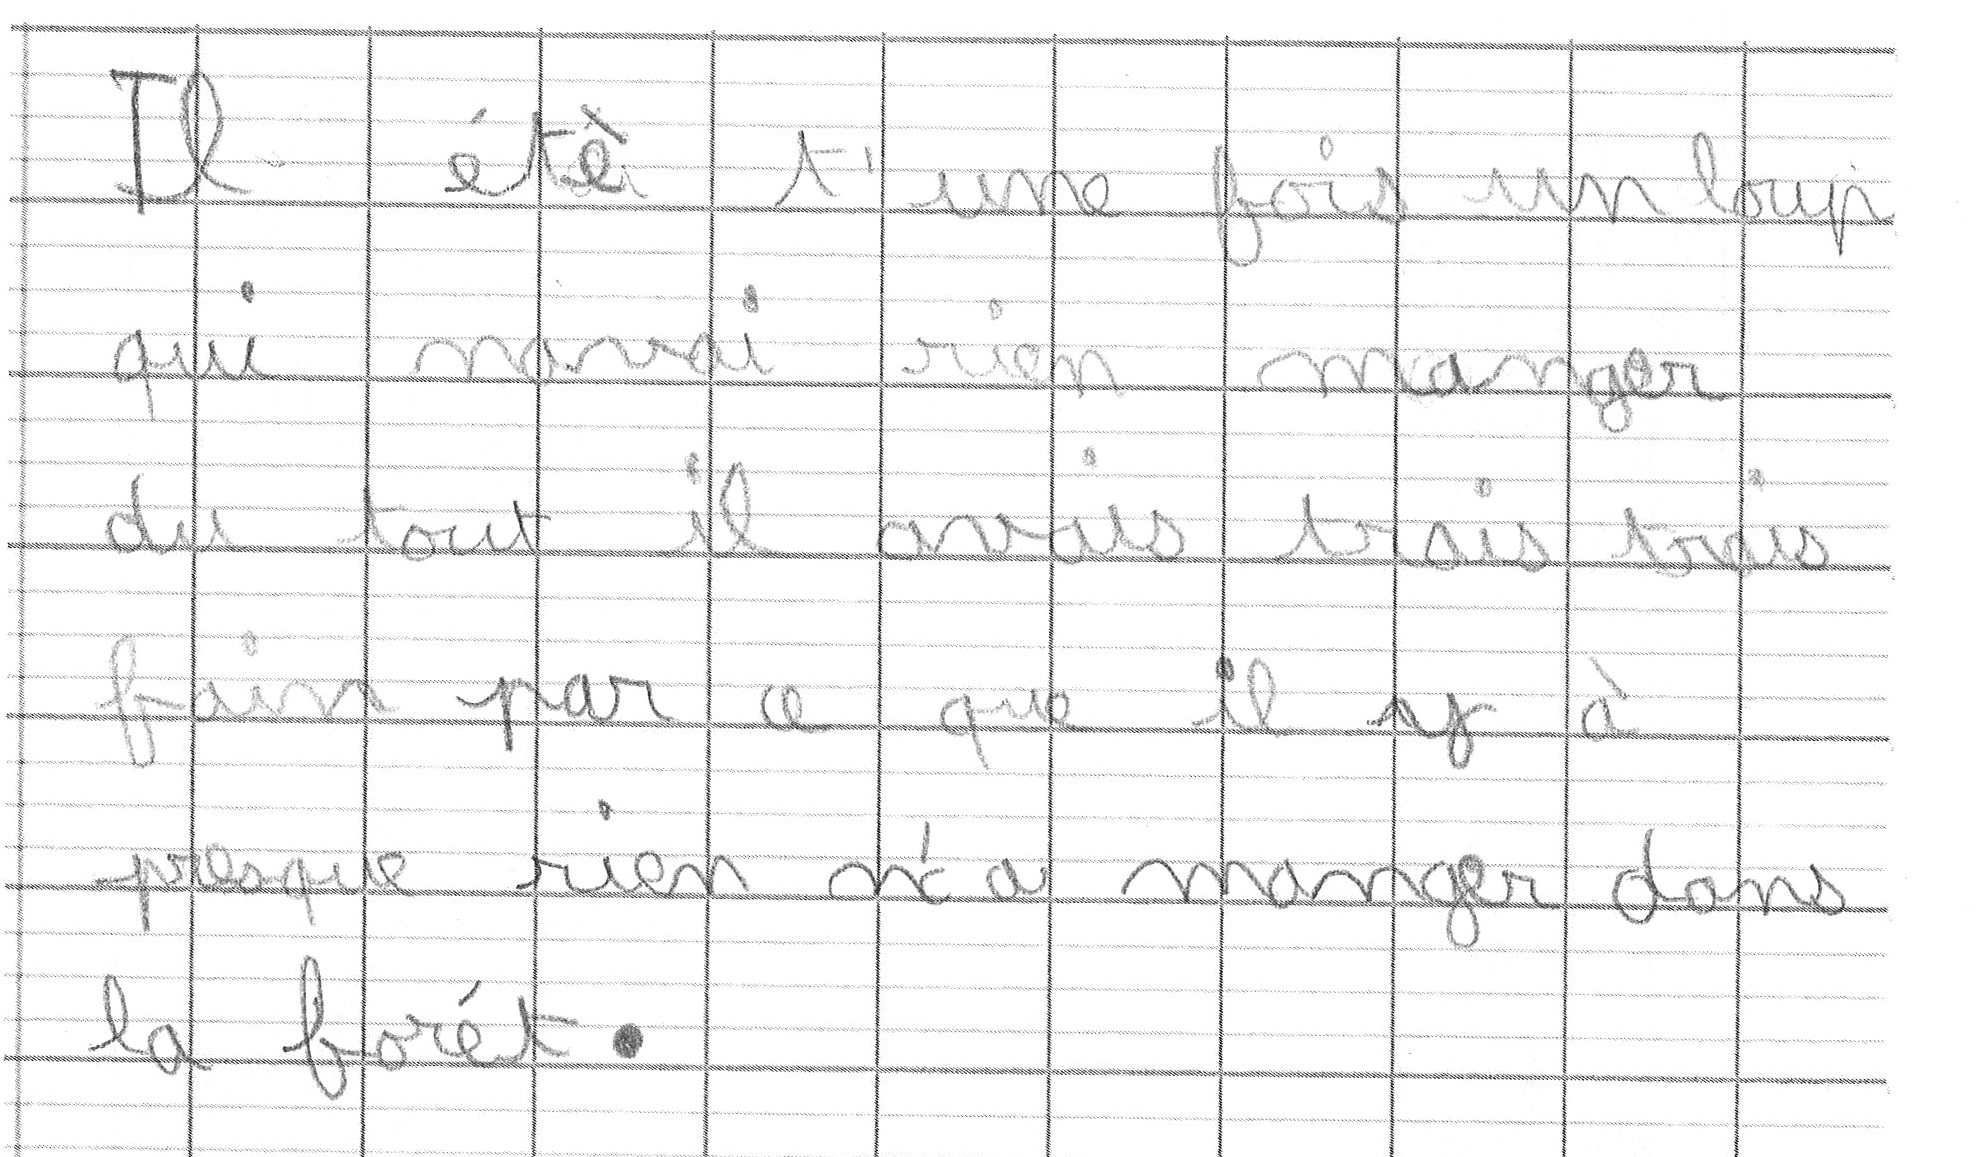 Il étè t'une fois un loup
qui navai rien manger
du tout il avais trais trais
faim par ce que il ny à
presque rien n'a manger dans
la forét.